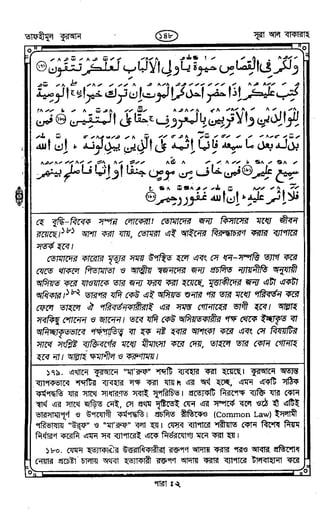 তাফহীমুল কুরআন ১৪৮ সূরা আল বাকারাহ
وَلَكُمْ فِي الْقِصَاصِ حَيٰوةٌ يّٰٓاُولِي الْاَلْبَابِ لَعَلَّكُمْ تَتَّقُوْنَ
كُتِبَ عَلَيْكُمْ اِذَا حَضَرَ اَحَدَكُمُ الْمَوْتُ اِنْ تَرَكَ خَيْرًا ۖ الْوَصِيَّةُ
لِلْوَالِدَيْنِ وَالْاَقْرَبِيْنَ بِالْمَعْرُوْفِ ۚ حَقًّا عَلَى الْمُتَّقِيْنَ فَمَنْ
بَدَّلَهٗ بَعْدَ مَا سَمِعَهٗ فَاِنَّمَآ اِثْمُهٗ عَلَى الَّذِيْنَ يُبَدِّلُوْنَهٗ ؕ اِنَّ اللّٰهَ
سَمِيْعٌ عَلِيْمٌ فَمَنْ خَافَ مِنْ مُّوْصٍ جَنَفًا اَوْ اِثْمًا فَاَصْلَحَ بَيْنَهُمْ
فَلَآ اِثْمَ عَلَيْهِ ؕ اِنَّ اللّٰهَ غَفُوْرٌ رَّحِيْمٌ
হে বুদ্ধি-বিবেক সম্পন্ন লোকেরা! তোমাদের জন্য কিসাসের মধ্যে জীবন
রয়েছে। আশা করা যায়, তোমরা এই আইনের বিরুদ্ধাচরণ করার ব্যাপারে
সতর্ক হবে।
তোমাদের কারোর মৃত্যুর সময় উপস্থিত হলে এবং সে ধন-সম্পত্তি ত্যাগ করে
যেতে থাকলে পিতামাতা ও আত্মীয় স্বজনদের জন্য প্রচলিত ন্যায়নীতি অনুযায়ী
অসিয়ত করে যাওয়াকে তার জন্য ফরয করা হয়েছে, মুত্তাকীদের জন্য এটা একটা
অধিকার। তারপর যদি কেউ এই অসিয়ত শুনার পর তার মধ্যে পরিবর্তন করে
ফেলে তাহলে ঐ পরিবর্তনকারীরাই এর সমস্ত গোনাহের ভাগী হবে। আল্লাহ
সবকিছু শোনেন ও জানেন। তবে যদি কেউ অসিয়তকারীর পক্ষ থেকে ইচ্ছাকৃত বা
অনিচ্ছাকৃতভাবে পক্ষপাতিত্ব বা হক নষ্ট হবার আশংকা করে এবং সে বিষয়টির
সাথে সংশ্লিষ্ট ব্যক্তিবর্গের মধ্যে মীমাংসা করে দেয়, তাহলে তার কোন গোনাহ
হবে না। আল্লাহ ক্ষমাশীল ও করুণাময়।
১৭৯. এখানে কুরআনে "মা'রূফ" শব্দটি ব্যবহার করা হয়েছে। কুরআনে অত্যন্ত
ব্যাপকভাবে শব্দটির ব্যবহার লক্ষ করা যায়। এর অর্থ হচ্ছে, এমন একটি সঠিক
কর্মপদ্ধতি যার সাথে সাধারণত সবাই সুপরিচিত। প্রত্যেকটি নিরপেক্ষ ব্যক্তি যার কোন
স্বার্থ এর সাথে জড়িত নেই, সে প্রথম দৃষ্টিতেই যেন এর সম্পর্কে বলে ওঠে হাঁ এটিই
ভারসাম্যপূর্ণ ও উপযোগী কর্মপদ্ধতি। প্রচলিত রীতিকেও (Common Law) ইসলামী
পরিভাষায় "উরফ" ও "মা'রূফ" বলা হয়। যেসব ব্যাপারে শরীয়াত কোন বিশেষ নিয়ম
নির্ধারণ করেনি এমন সব ব্যাপারেই একে নির্ভরযোগ্য মনে করা হয়।
১৮০. যেমন হত্যাকারীর উত্তরাধিকারীরা রক্তপণ আদায় করার পরও আবার প্রতিশোধ
নেয়ার প্রচেষ্টা চালায় অথবা হত্যাকারী রক্তপণ আদায় করার ব্যাপারে টালবাহানা করে
পারা ঃ ২